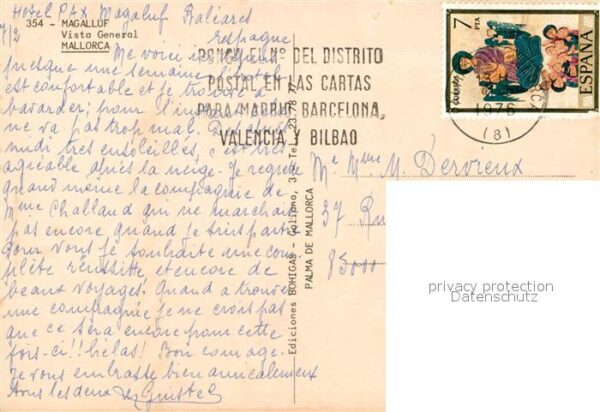 Hotel PAX Magaluf Baléares
Espagne
7/2
354 - MAGALLUF
Vista General
MALLORCA
Me voici ici depuis
presque une semaine. L'hôtel
est confortable et je trouve à
bavarder; pour l'instant
ne va pas trop mal.
midi très ensoleillés, est très
agréable après la neige. Je regrette
quand même la compagnie de
Mme Challand qui ne marchait
pas encore quand je suis partie
Pour vous je souhaite une com
plète réussite et encore de
beaux voyages. Quand à trouver
une compagnie je ne crois pas
que ce sera encore pour cette
fois-ci!! hélas! Bon courage.
Je vous embrasse bien amicalement
tous les deux
PONGA EL Nº DEL DISTRITO
POSTAL EN LAS CARTAS
PARA MADRID, BARCELONA,
VALENCIA Y BILBAO
7
PTA
CORREOS
ESPAÑA
1976
(8)
M. Mme. M. Dervieux
37 Ru
85000
Ediciones BOHIGAS - Goliano, 3 - Tel. 23 78 77
PALMA DE MALLORCA
privacy protection
Datenschutz